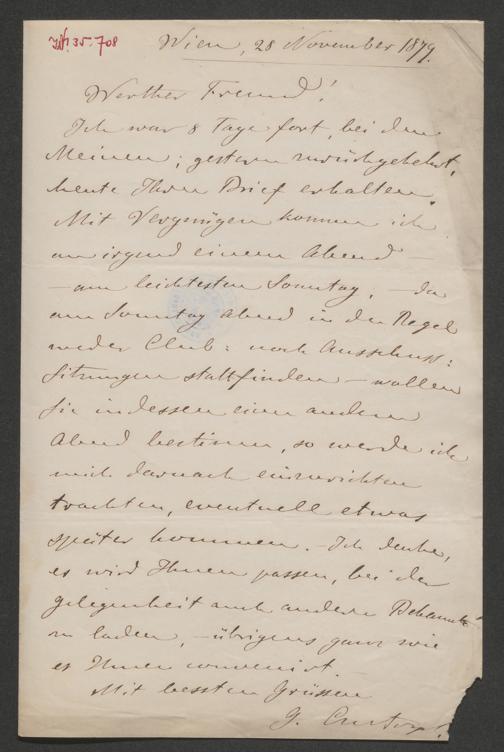 35-708
Wien, 28 November 1879.
Werther Freund!
Ich war 8 Tage fort, bei den
Meinen; gestern zurückgekehrt,
heute Ihren Brief erhalten.
Mit Vergnügen komme ich
an irgend einem Abend –
– am leichtesten Sonntag, – da
am Sonntag Abend in der Regel
weder Club: noch Ausschuss:
Sitzungen stattfinden – wollen
Sie indessen einen anderen
Abend bestimmen, so werde ich
mich darnach einzurichten
trachten, eventuell etwas
später kommen. – Ich denke,
es wird Ihnen passen, bei der
Gelegenheit auch andere Bekannte
zu laden, – übrigens ganz wie
es Ihnen convenirt.
Mit besten Grüssen